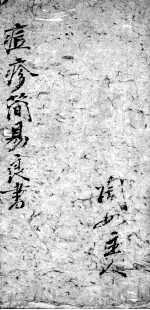 痘疹簡易良書
主人